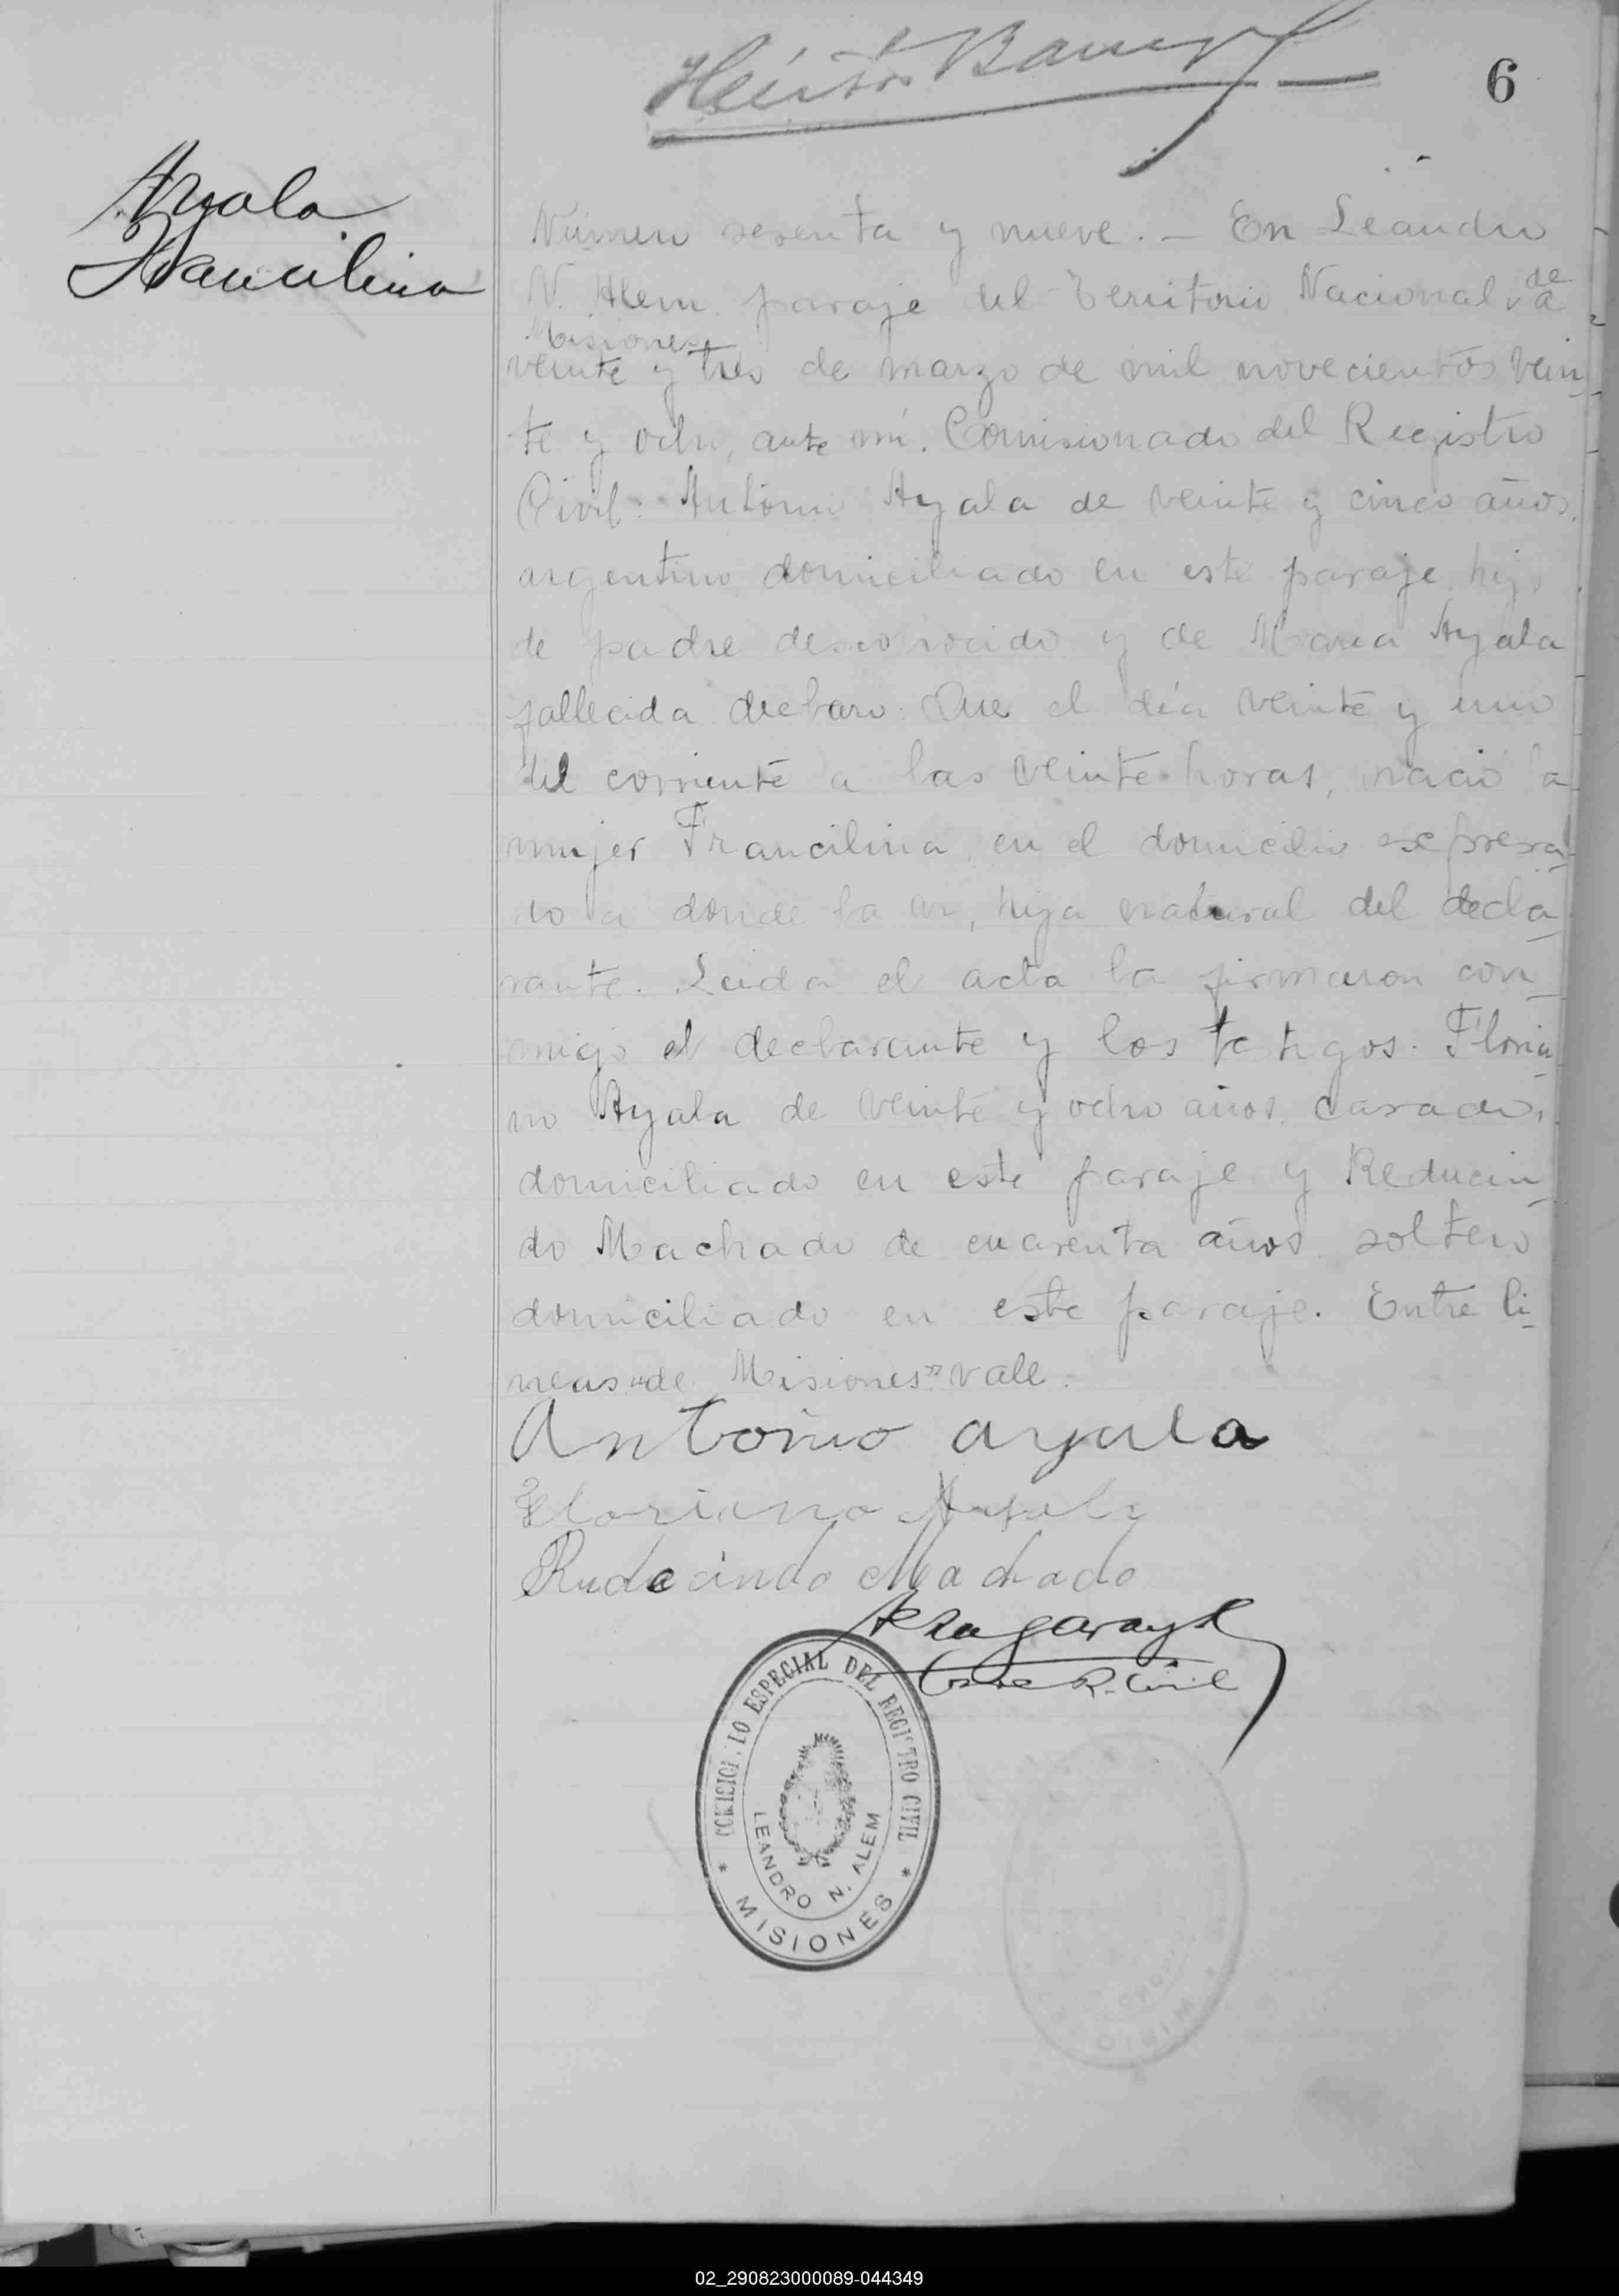 6
Ayala
Francilina
Número sesenta y nueve. — En Leandro
N. Alem. paraje del Territorio Nacional de a
Misiones
veinte y tres de marzo de mil novecientos vein-
te y ocho, ante mi. Comisionado del Registro
Civil: Antonio Ayala de veinte y cinco años.
argentino domiciliado en este paraje hijo
de padre desconocido y de Maria Ayala
fallecida declaro: Que el día veinte y uno
del corriente a las veinte horas, nació la
mujer Francilina en el domicilio expresa-
do a donde la vi, hija natural del decla-
rante. Leida el acta la firmaron con-
migo el declarante y los testigos: Floria-
no Ayala de veinte y ocho años, casado,
domiciliado en este paraje y Reducin-
do Machado de cuarenta años soltero
domiciliado en este paraje. Entre li-
neas "de Misiones" vale.
Antonio ayala
Floriano Ayala
Rudecindo Machado
R. Civil
ESPECIAL DEL REGISTRO CIVIL
LEANDRO N. ALEM
* MISIONES *
02_290823000089-044349